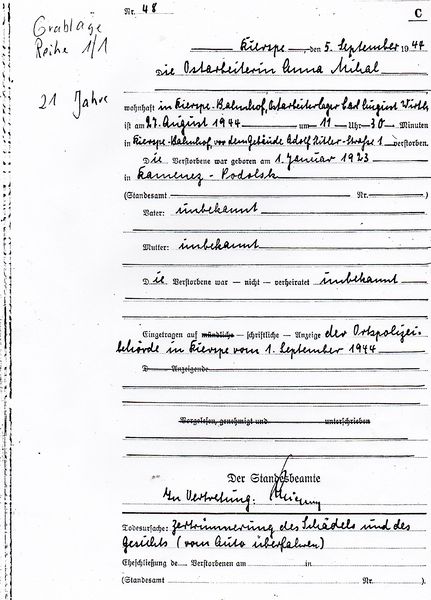 Grablage
Reihe 1/1
21 Jahre
Nr. 48
C
Kierspe, den 5. September 1944
Die Ostarbeiterin Anna Mihal
wohnhaft in Kierspe-Bahnhof, Ostarbeiterlager Carl August Wirth
ist am 27. August 1944 um 11 Uhr 30 Minuten
in Kierspe-Bahnhof vor dem Gebäude Adolf Hitler-Straße 1 verstorben.
Die Verstorbene war geboren am 1. Januar 1923
in Kamenez-Podolsk
(Standesamt Nr. )
Vater: unbekannt
Mutter: unbekannt
Die Verstorbene war — nicht — verheiratet unbekannt
Eingetragen auf mündliche — schriftliche — Anzeige der Ortspolizei-
behörde in Kierspe vom 1. September 1944
D Anzeigende
Vorgelesen, genehmigt und unterschrieben
Der Standesbeamte
In Vertretung:
Todesursache: Zertrümmerung des Schädels und des
Gesichts (vom Auto überfahren)
Eheschließung de Verstorbenen am in
(Standesamt Nr. ).